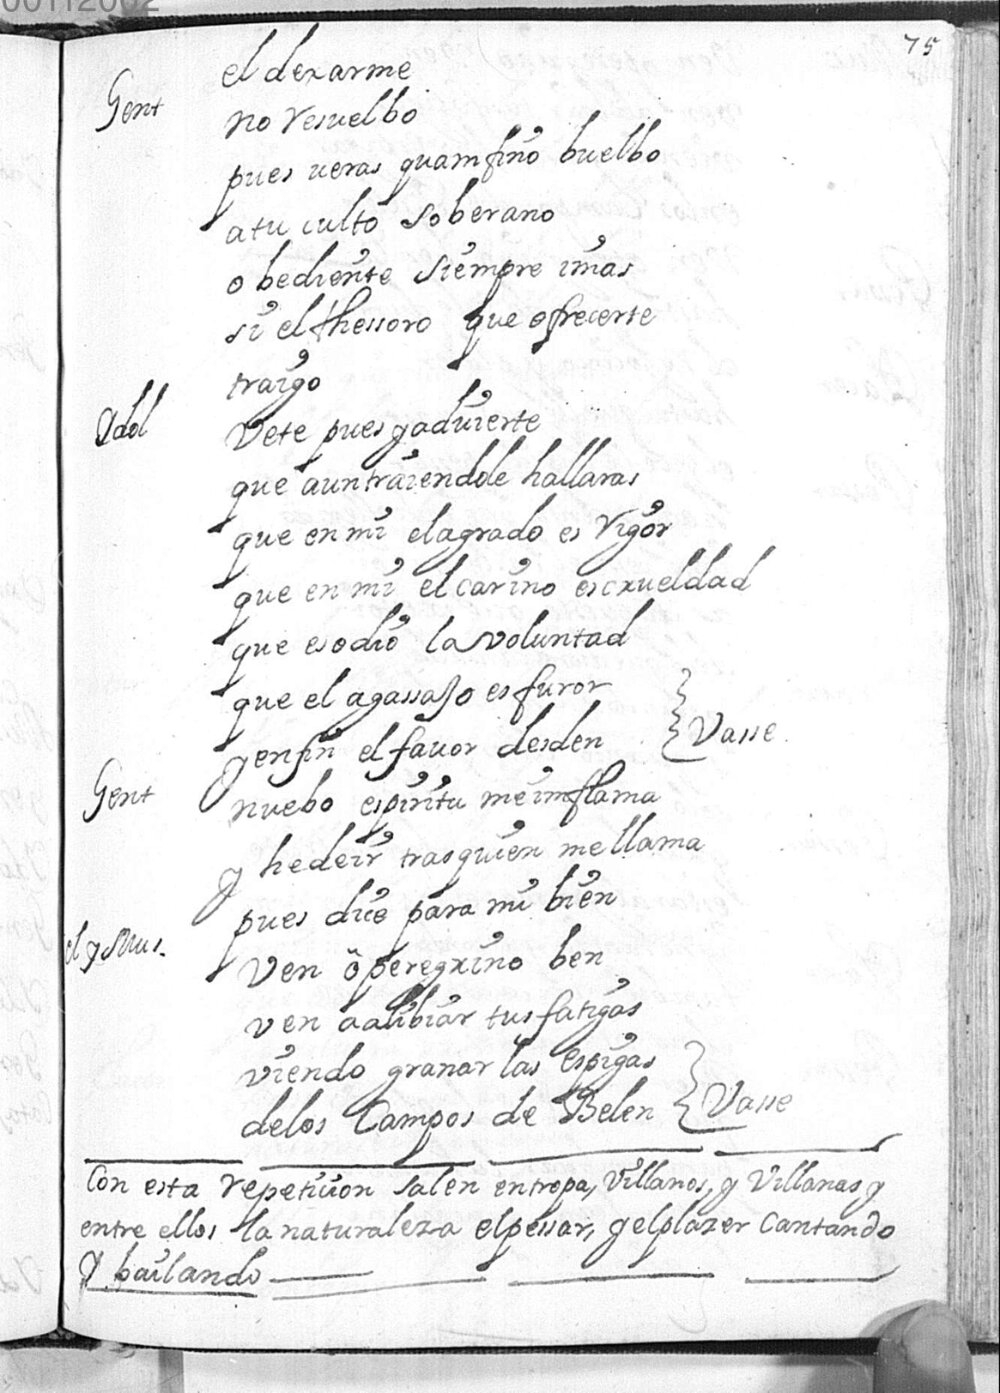 00112002
75
el dexarme
Gent no resuelbo
pues ueras quam fino buelbo
a tu culto soberano
obediente siempre i mas
si el thessoro que ofrecerte
traigo
Ydol Vete pues y aduierte
que aun traiendole hallaras
que en mi el agrado es rigor
que en mi el carino es crueldad
que es odio la voluntad
que el agassajo es furor
y en fin el fauor desden } Vasse
Gent nuebo espiritu me imflama
y he de ir tras quien me llama
pues dice para mi bien
el y Mus. Ven ô peregrino ben
ven a alibiar tus fatigas
viendo granar las espigas
de los Campos de Belen } Vasse
Con esta repeticion salen en tropa, Villanos, y Villanas y
entre ellos la naturaleza el pessar, y el plazer Cantando
Y bailando